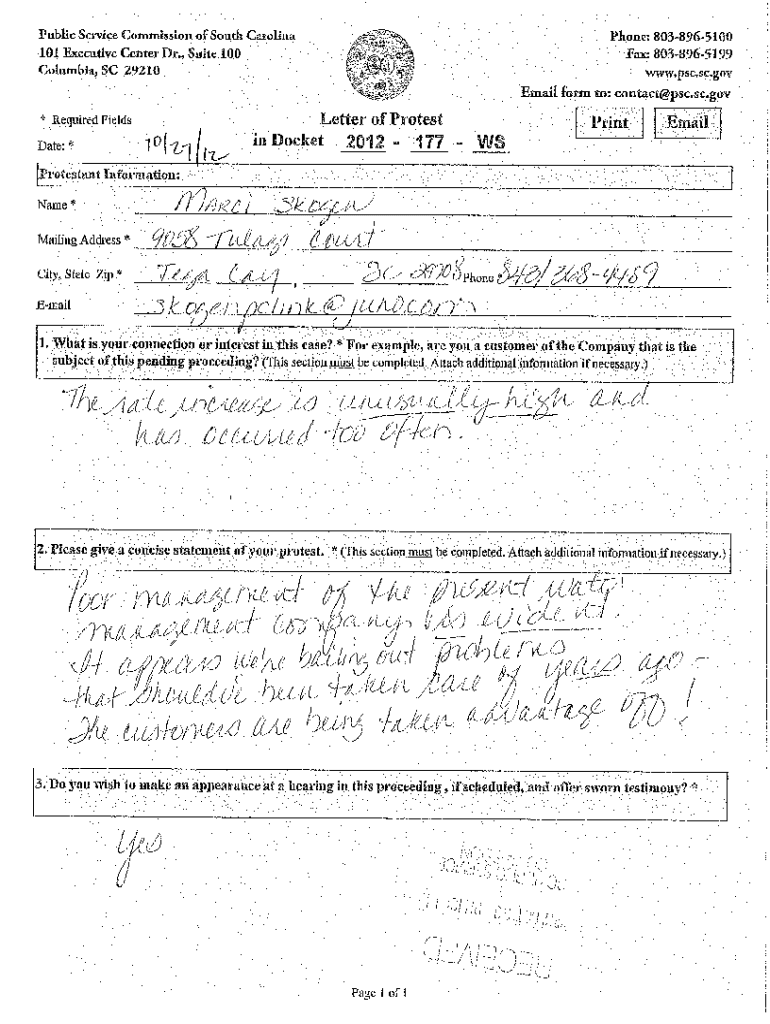 Public Service Commission of South Carolina
101 Executive Center Dr., Suite 100
Columbia, SC 29210
Phone: 803-896-5100
Fax: 803-896-5199
www.psc.sc.gov
Email form to: contact@psc.sc.gov
* Required Fields
Letter of Protest
Print Email
Date: * 10/27/12 in Docket 2012 - 177 - WS
Protestant Information:
Name * Marci Skogen
Mailing Address * 9058 Tulagi Court
City, State Zip * Tega Cay, SC 29708 Phone 843/268-4489
E-mail skogenpclink@juno.com
1. What is your connection or interest in this case? * For example, are you a customer of the Company that is the
subject of this pending proceeding? (This section must be completed. Attach additional information if necessary.)
The rate increase is unusually high and
has occurred too often.
2. Please give a concise statement of your protest. * (This section must be completed. Attach additional information if necessary.)
Poor management of the present water
management company is evident.
It appears we're bailing out problems
that should've been taken care of years ago -
The customers are being taken advantage of!
3. Do you wish to make an appearance at a hearing in this proceeding, if scheduled, and offer sworn testimony? *
Yes
RECEIVED
Page 1 of 1